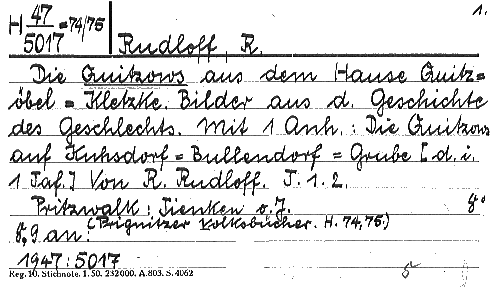 1.
H 47/5017 = 74/75
Rudloff, R.
Die Quitzows aus dem Hause Quitz=
öbel = Kletzke. Bilder aus d. Geschichte
des Geschlechts. Mit 1 Anh.: Die Quitzows
auf Kuhsdorf = Bullendorf = Grube [d. i.
1 Taf.] Von R. Rudloff. T. 1. 2.
Pritzwalk: Tienken o. J. 8°
(Prignitzer Volksbücher. H. 74, 75.)
8, 9 an:
1947: 5017
5
Reg. 10. Stichnote. 1. 50. 232000. A.803. S. 4062